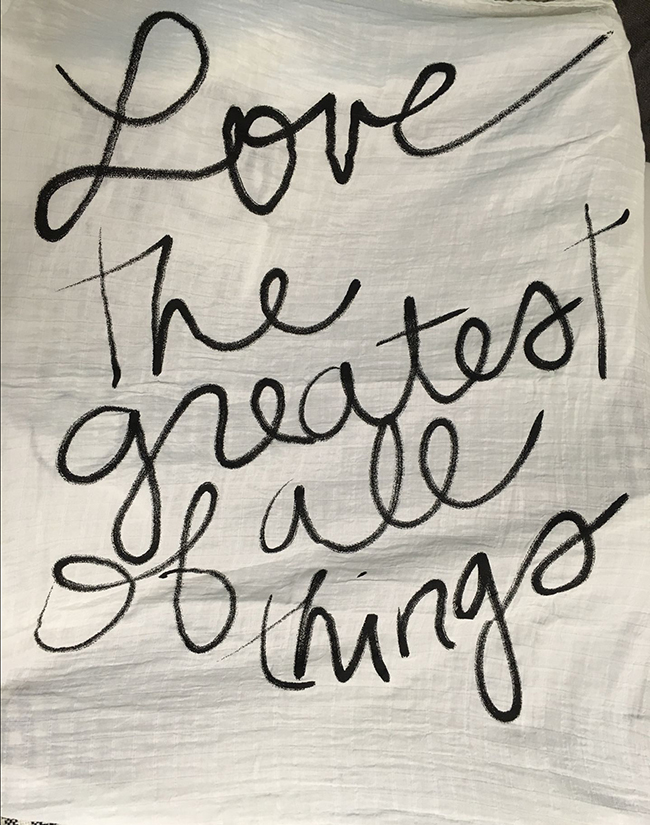 Love
the
greatest
of all
things